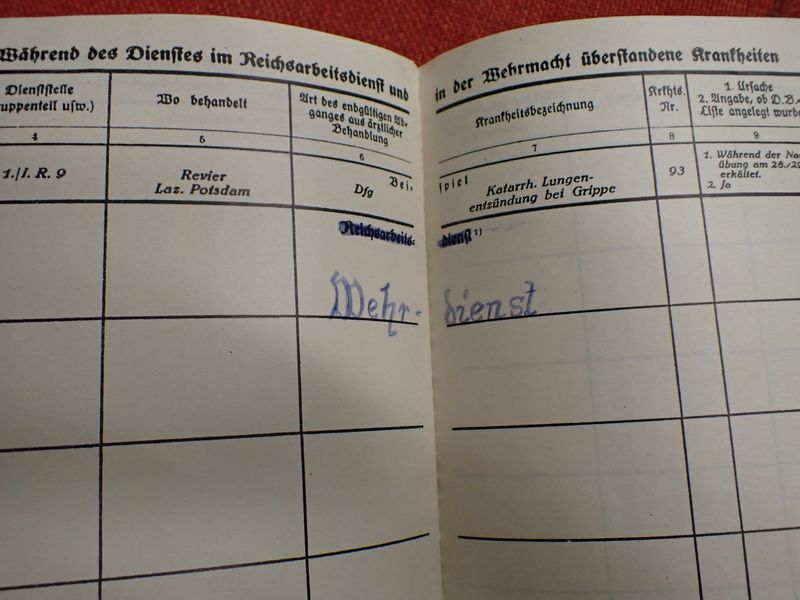 Während des Dienstes im Reichsarbeitsdienst und in der Wehrmacht überstandene Krankheiten
Dienststelle
ruppenteil usw.)
Wo behandelt
Art des endgültigen Ab-
ganges aus ärztlicher
Behandlung
Krankheitsbezeichnung
Krkhts.
Nr.
1. Ursache
2. Angabe, ob D.B.-
Liste angelegt wurde
4 5 6 7 8 9
1./I. R. 9
Revier
Laz. Potsdam
Bei-spiel
Dfg
Katarrh. Lungen-
entzündung bei Grippe
93
1. Während der Nac
übung am 28./29
erkältet.
2. Ja
Reichsarbeits-dienst 1)
Wehr-dienst